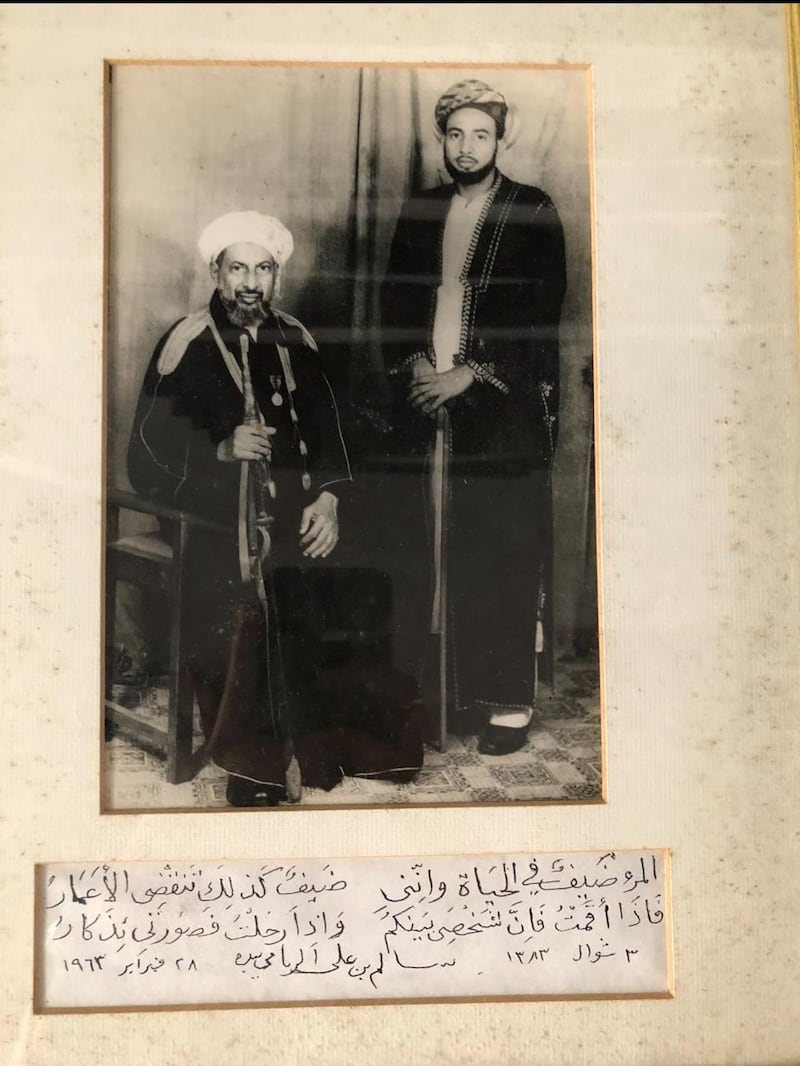 المرءُ ضَيفٌ في الحَيَاة وانّني ضَيفٌ كَذلِكَ تَنقَضِى الأعمَارُ
فَاذَا أقَمْتُ فَانَّ شَخْصِى بَينَكمُ وَاذا رَحَلْتُ فَصُورَتى تِذكارُ
٣ شوال ١٣٨٣ سالم بن على الريامي بيده ٢٨ فبراير ١٩٦٣